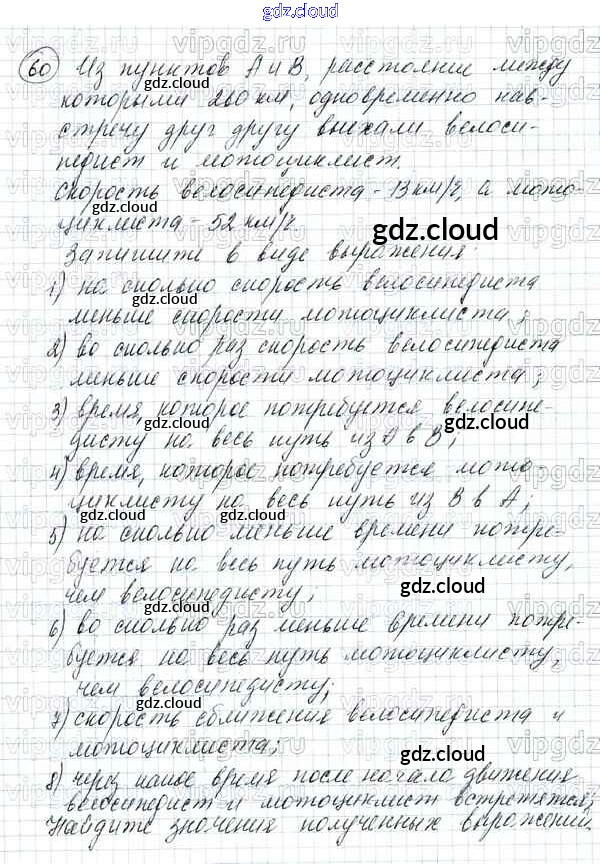 gdz.cloud
60 Из пунктов А и В, расстояние между
которыми 260 км, одновременно нав-
стречу друг другу выехали велоси-
педист и мотоциклист.
Скорость велосипедиста - 13 км/ч, а мото-
циклиста - 52 км/ч.
Запишите в виде выражения:
1) на сколько скорость велосипедиста
меньше скорости мотоциклиста;
2) во сколько раз скорость велосипедиста
меньше скорости мотоциклиста;
3) время, которое потребуется велосипе-
дисту на весь путь из А в В;
4) время, которое потребуется мото-
циклисту на весь путь из В в А;
5) на сколько меньше времени потре-
буется на весь путь мотоциклисту,
чем велосипедисту;
6) во сколько раз меньше времени потре-
буется на весь путь мотоциклисту,
чем велосипедисту;
7) скорость сближения велосипедиста и
мотоциклиста;
8) через какое время после начала движения
велосипедист и мотоциклист встретятся.
Найдите значения полученных выражений.